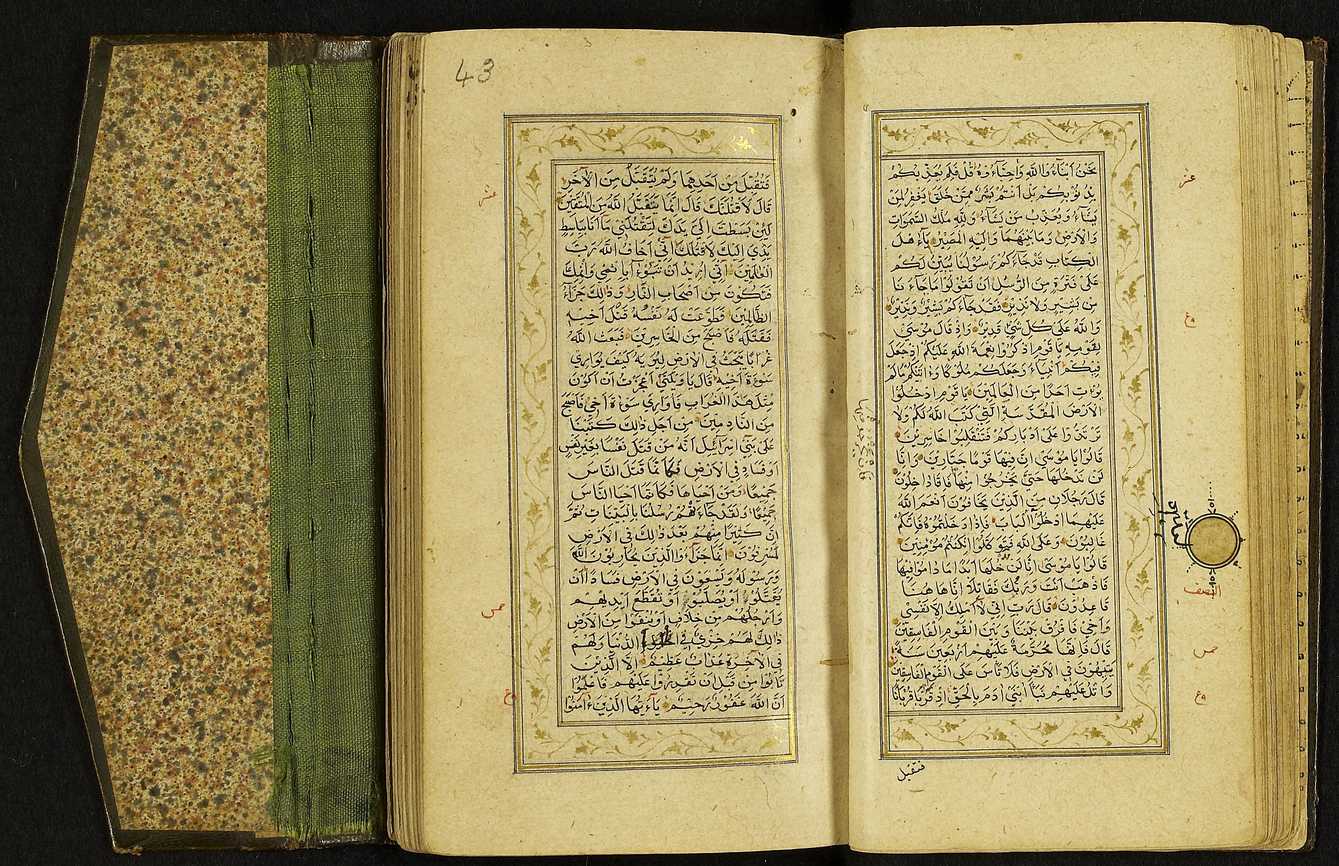 نحن ابناء والله واحباؤه قل فلم يعذبكم
بذنوبكم بل انتم بشر ممن خلق يغفر لمن
يشاء ويعذب من يشاء ولله ملك السموات
والارض وما بينهما واليه المصير يا اهل
الكتاب قد جاءكم رسولنا يبين لكم
على فترة من الرسل ان تقولوا ما جاءنا
من بشير ولا نذير فقد جاءكم بشير ونذير
والله على كل شئ قدير واذ قال موسى
لقومه يا قوم اذكروا نعمة الله عليكم اذ جعل
فيكم انبياء وجعلكم ملوكا واتيكم ما لم
يؤت احدا من العالمين يا قوم ادخلوا
الارض المقدسة التي كتب الله لكم ولا
ترتدوا على ادباركم فتنقلبوا خاسرين
قالوا يا موسى ان فيها قوما جبارين وانا
لن ندخلها حتى يخرجوا منها فانا داخلون
قال رجلان من الذين يخافون انعم الله
عليهما ادخلوا الباب فاذا دخلتموه فانكم
غالبون وعلى الله فتوكلوا ان كنتم مؤمنين
قالوا يا موسى انا لن ندخلها ابدا ما داموا فيها
فاذهب انت وربك فقاتلا انا ههنا
قاعدون قال رب اني لا املك الا نفسي
واخي فافرق بيننا وبين القوم الفاسقين
قال فانها محرمة عليهم اربعين سنة
يتيهون في الارض فلا تأس على القوم الفاسقين
واتل عليهم نبأ ابني ادم بالحق اذ قربا قربانا
فتقبل
عشر
ع
النصف
خمس
ع
43
فتقبل من احدهما ولم يتقبل من الآخر
قال لاقتلنك قال انما يتقبل الله من المتقين
لئن بسطت الي يدك لتقتلني ما انا بباسط
يدي اليك لاقتلك اني اخاف الله رب
العالمين اني اريد ان تبوء باثمي واثمك
فتكون من اصحاب النار وذلك جزاء
الظالمين فطوعت له نفسه قتل اخيه
فقتله فاصبح من الخاسرين فبعث الله
غرابا يبحث في الارض ليريه كيف يواري
سوءة اخيه قال يا ويلتى اعجزت ان اكون
مثل هذا الغراب فاواري سوءة اخي فاصبح
من النادمين من اجل ذلك كتبنا
على بني اسرائيل انه من قتل نفسا بغير نفس
او فساد في الارض فكانما قتل الناس
جميعا ومن احياها فكانما احيا الناس
جميعا ولقد جاءتهم رسلنا بالبينات ثم
ان كثيرا منهم بعد ذلك في الارض
لمسرفون انما جزاء الذين يحاربون الله
ورسوله ويسعون في الارض فسادا ان
يقتلوا او يصلبوا او تقطع ايديهم
وارجلهم من خلاف او ينفوا من الارض
ذلك لهم خزي في الدنيا ولهم
في الآخرة عذاب عظيم الا الذين
تابوا من قبل ان تقدروا عليهم فاعلموا
ان الله غفور رحيم يا ايها الذين آمنوا
عشر
خمس
ع